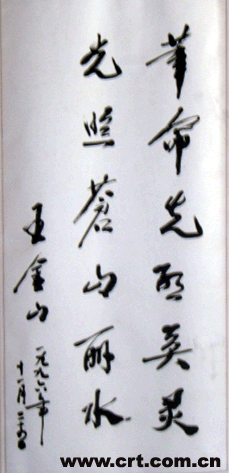 革命先烈英灵
光照蒼山丽水
王金山
一九九六年
十一月二十日
www.crt.com.cn